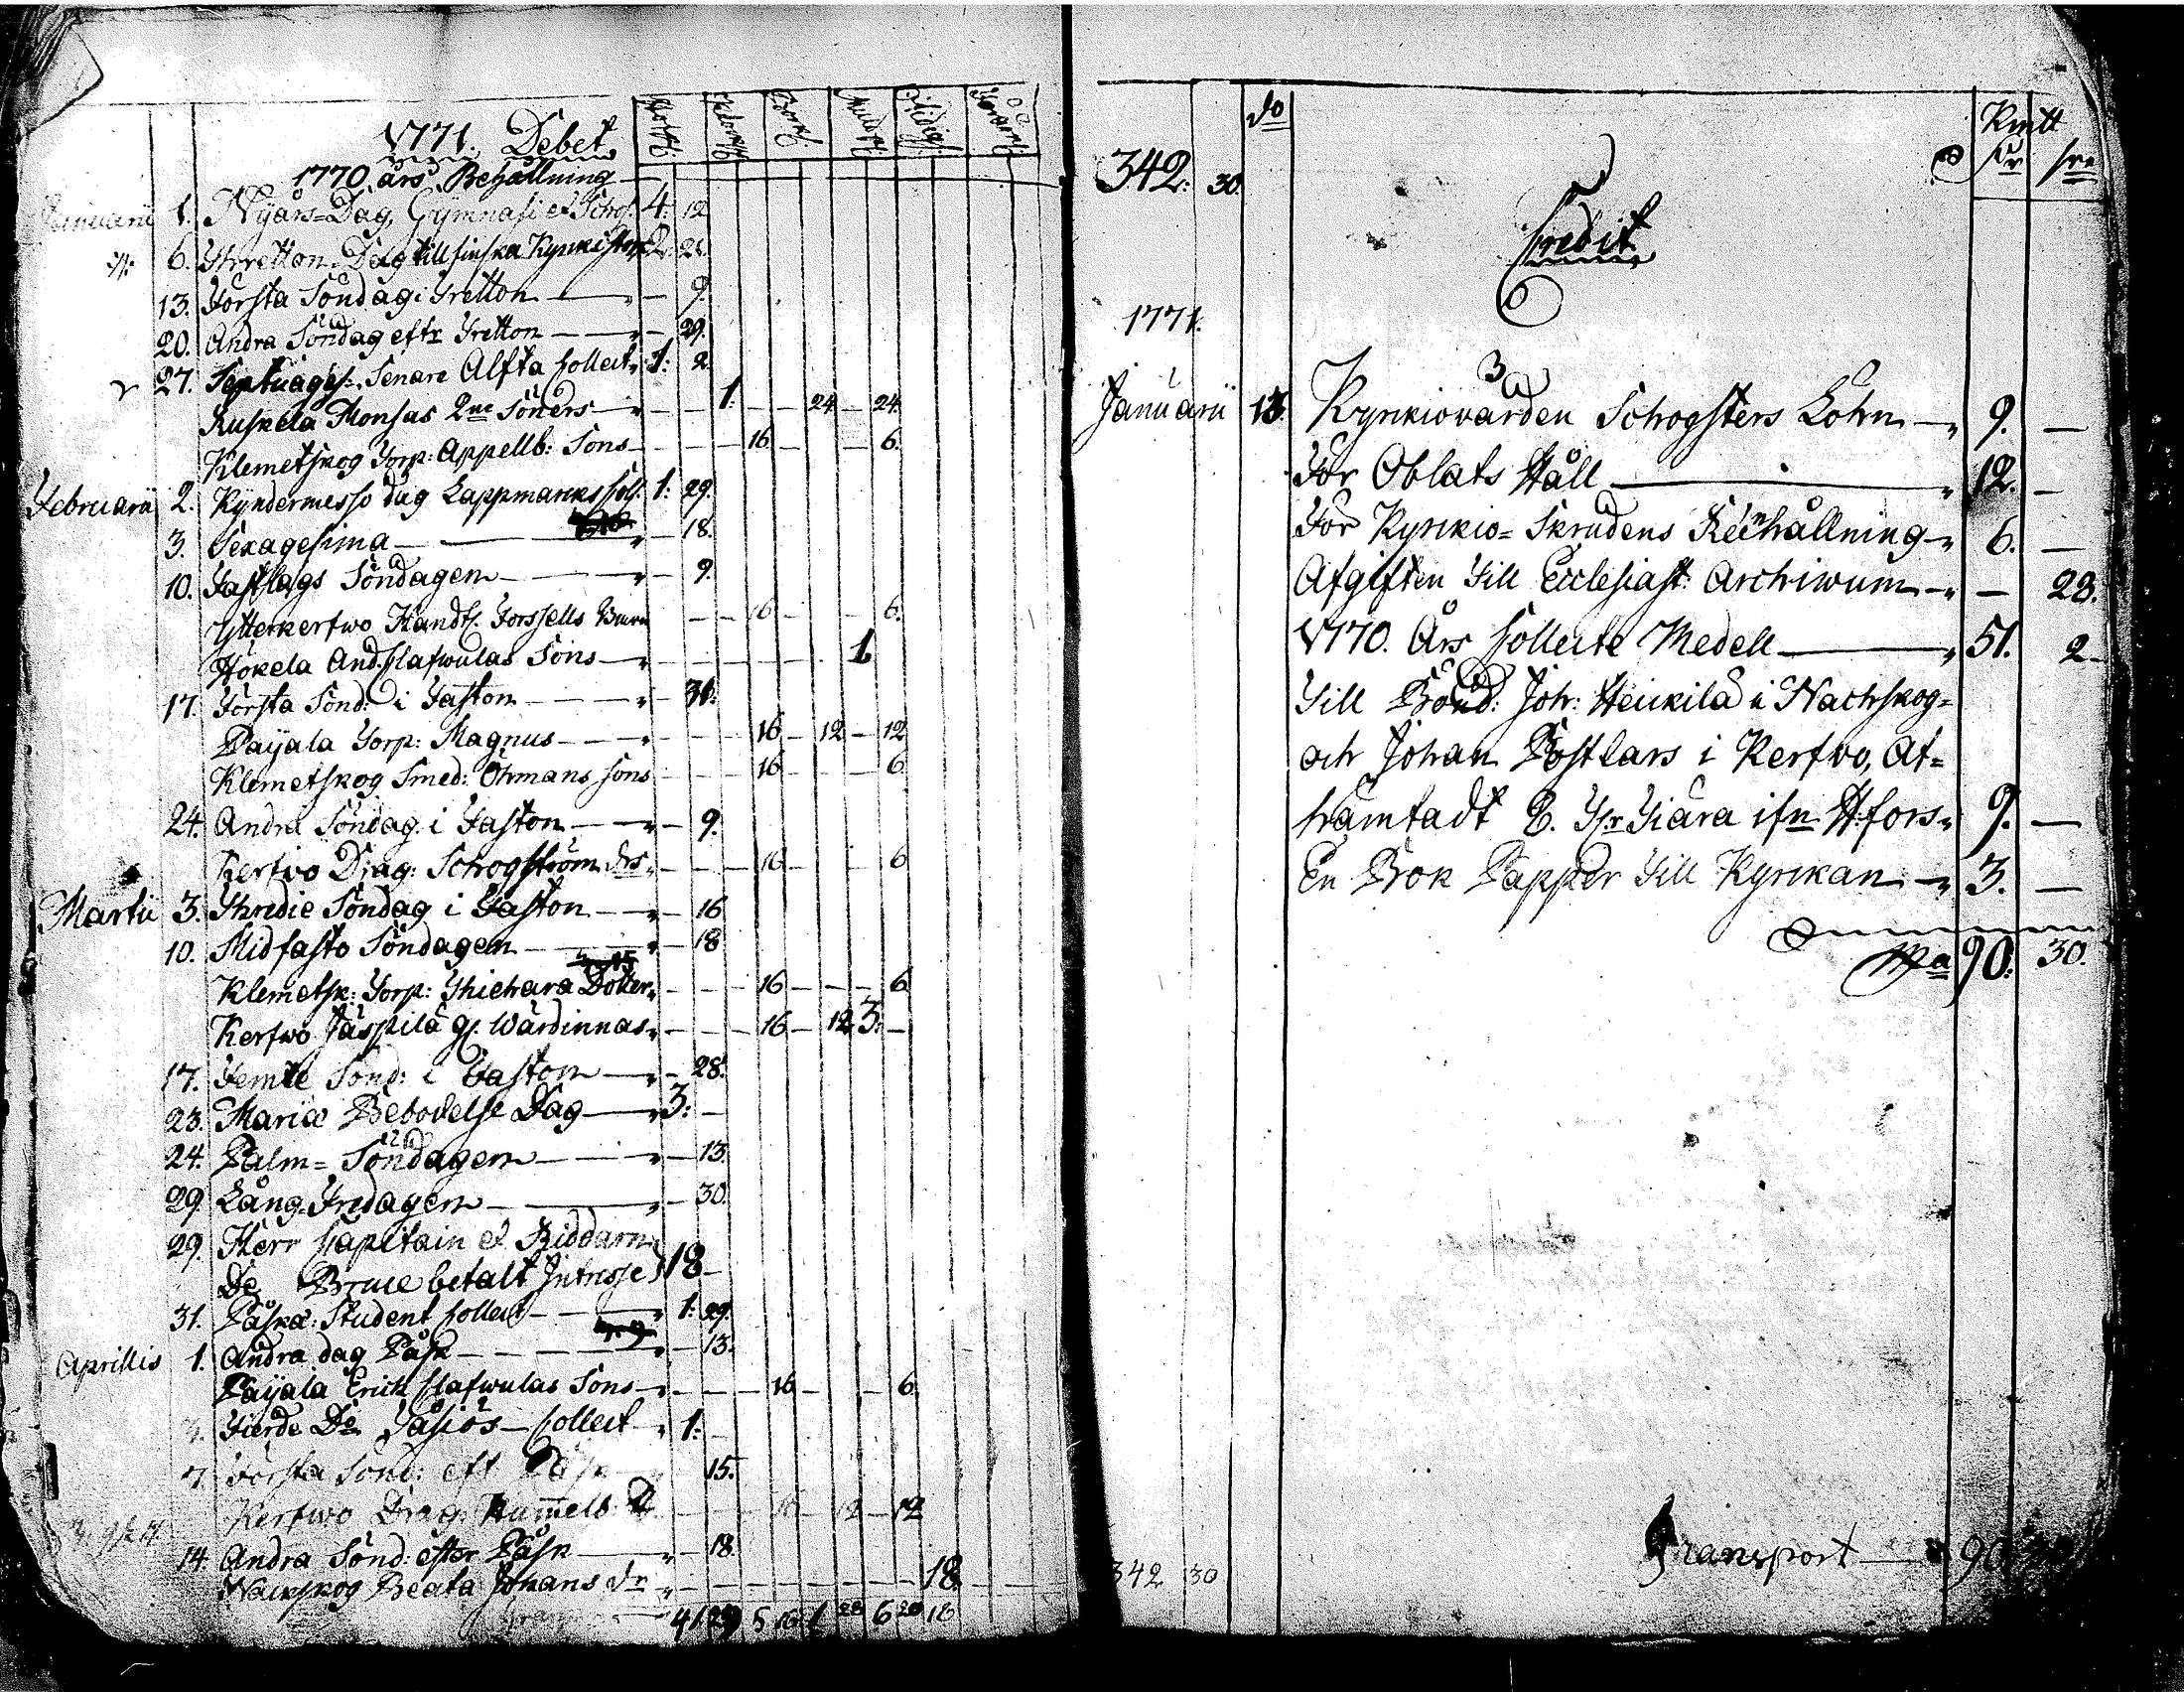 1771. Debet
1770 års Behållning
Januarii 1. Nyårs=Dag, Gymnasi et Schol. 4: 12
6. Thretton Dag till finska Kyrki 2. 21.
13. Första Söndag i Tretton — 9.
20. Andra Söndag eftr Tretton — 29.
27. Septuages: Senare Alfta Collect 1: 2
Ruskela Monsas 2ne Söners — 1: — 24 — 24
Klemetskog Torp: Appellb: Sons — 16 — 6.
Februarii 2. Kyndermesso dag Lappmarks Coll. 1: 29.
3. Sexagesima — 18.
10. Fastlags Söndagen — 9.
Ytterkerfwo Handl. Forssells Barn — 16 — 6.
Hökela And. Clafwulas Sons — 1
17. Första Sönd: i Faston — 31.
Paijala Torp: Magnus — 16 — 12 — 12
Klemetskog Smed: Öhmans Sons — 16 — 6
24. Andra Söndag i Faston — 9.
Kerfwo Drag: Schogström drs — 16 — 6
Martii 3. Thredie Söndag i Faston — 16
10. Midfasto Söndagen — 18
Klemetsk: Torp: Thichara Dotter — 16 — 6
Kerfwo Jäspilä gl. Wärdinnas — 16 — 12 3: —
17. Femte Sönd: i Faston — 28.
23. Mariæ Bebodelse Dag — 3: —
24. Palm= Söndagen — 13.
29. Lång=Fredagen — 30.
29. Herr Capitain et Riddarn
De Bruce betalt Intresse 18 —
31. Påska: Student Collect — 1: 29.
Aprillis 1. Andra dag Påsk — 13.
Paijala Erick Clafwulas Sons — 16 — 6
Fierde Do Collect 1: —
7. Första Sönd: eft Påsk 15.
Kerfwo Drag: Hummelb: — 16 — 12 — 12
14. Andra Sönd: efter Påsk — 18.
Nackskog Beata Johans dr — 18.
41 29 5 16 1 28 6 20 18
342: 30.
do
Kmtt
Credit
1771.
Januarii 13. Kyrkiovärden Schogsters Löhn — 9. —
För Oblats Håll — 12. —
För Kyrkio=Skrudens Reenhållning — 6. —
Afgiften Till Ecclesiast: Archiwum — 28.
1770. Års Collecte Medell — 51. 2
Till Bönd: Joh: Heikilä i Nachskog=
och Johan Postlars i Kerfwo, At=
hämtadt Tiära ifn Hfors 9. —
En Bok Papper Till Kyrkan — 3. —
90: 30.
Transport — 90
342 30